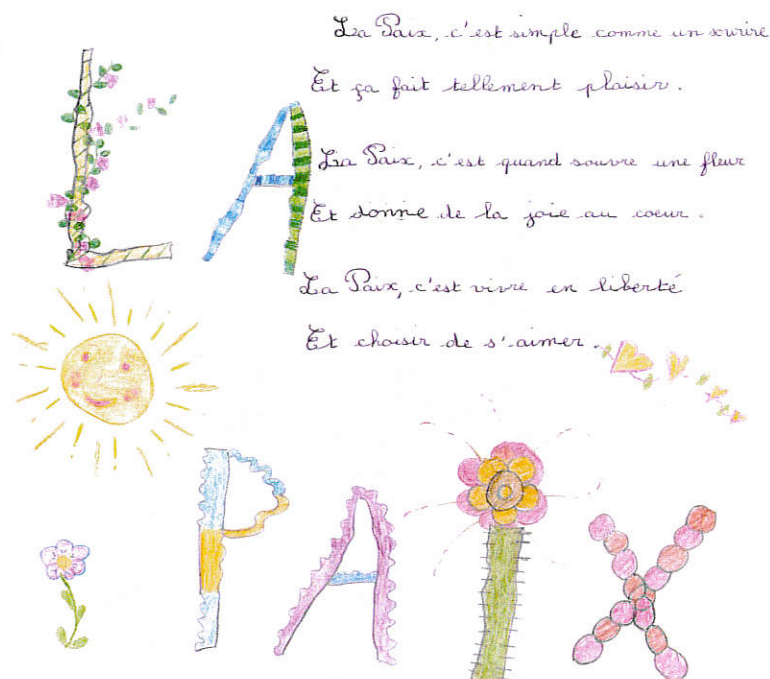 La Paix, c'est simple comme un sourire
Et ça fait tellement plaisir.
La Paix, c'est quand souvre une fleur
Et donne de la joie au coeur.
La Paix, c'est vivre en liberté
Et choisir de s'aimer.
LA
PAIX